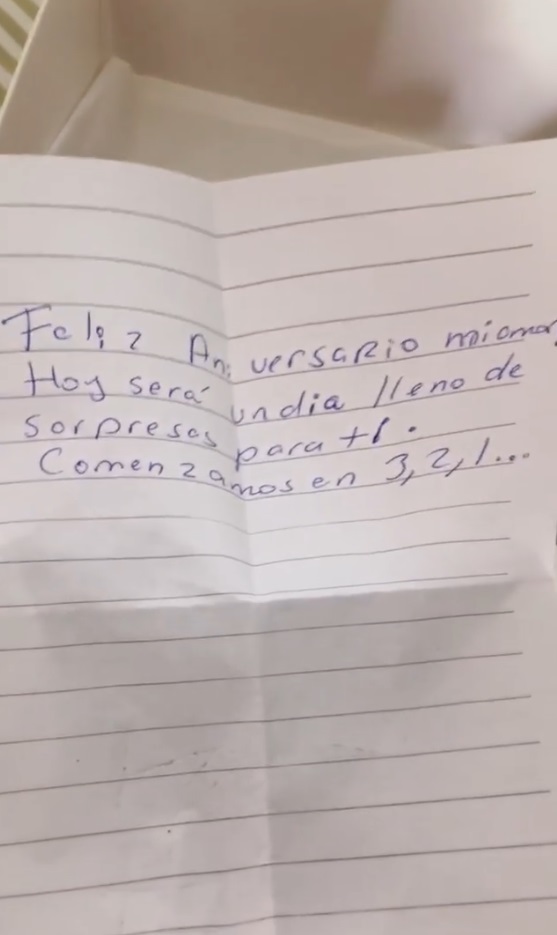 Feliz Aniversario miamor,
Hoy será undia lleno de
sorpresas para ti.
Comenzamos en 3, 2, 1...